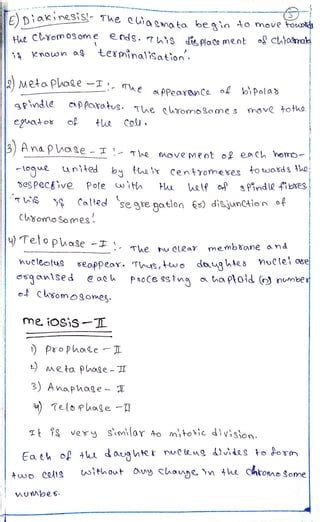 5
E) Diakinesis:- The chiasmata begin to move towards
the chromosome ends. This displacement of chiasmata
is known as 'terminalisation'.
2) Metaphase-I :- The appearance of bipolar
spindle apparatus. The chromosomes move to the
equator of the cell.
3) Anaphase-I :- The movement of each homo-
-logue united by their centromeres towards the
respective pole with the help of spindle fibres.
This is called 'segregation (or) disjunction of
chromosomes'.
4) Telophase-I :- The nuclear membrane and
nucleolus reappear. Thus, two daughter nuclei are
organised each processing a haploid (n) number
of chromosomes.
meiosis-II
1) prophase-II
2) metaphase-II
3) Anaphase-II
4) Telophase-II
It is very similar to mitotic division.
Each of the daughter nucleus divides to form
two cells without any change in the chromosome
number.